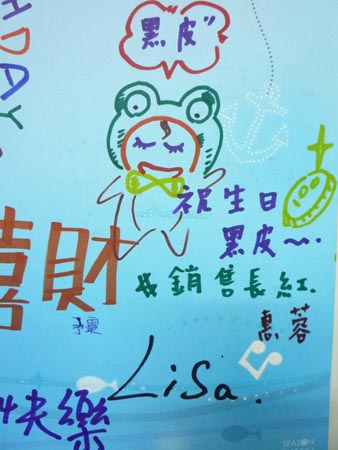 HDAY.
黑皮"
祝生日
黑皮~.
喜財
&銷售長紅.
惠蓉
Lisa.
快樂
SEASON